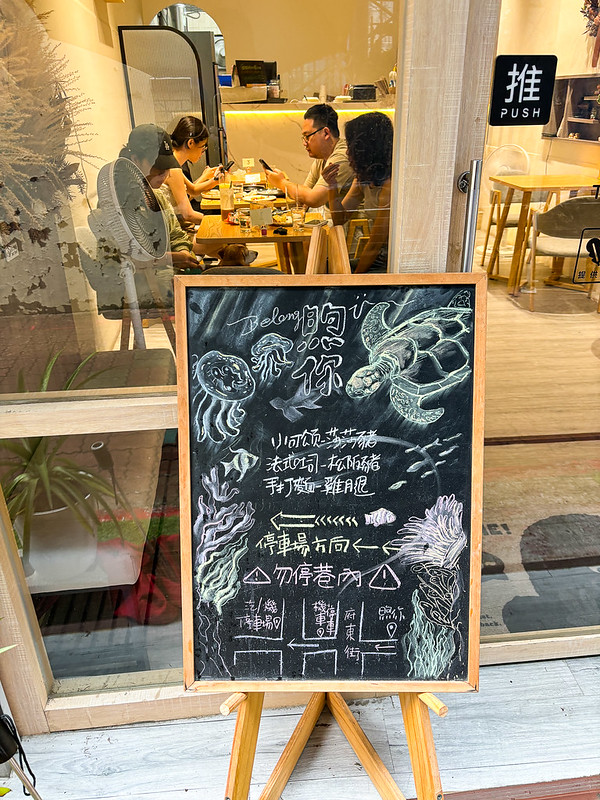 推
PUSH
Belong
照
你
小可頌-莎莎豬
法式吐司-松阪豬
手打麵-雞腿
停車場方向
勿停巷內
汽/機
停車場
機車
停車
府東街
照你
提供